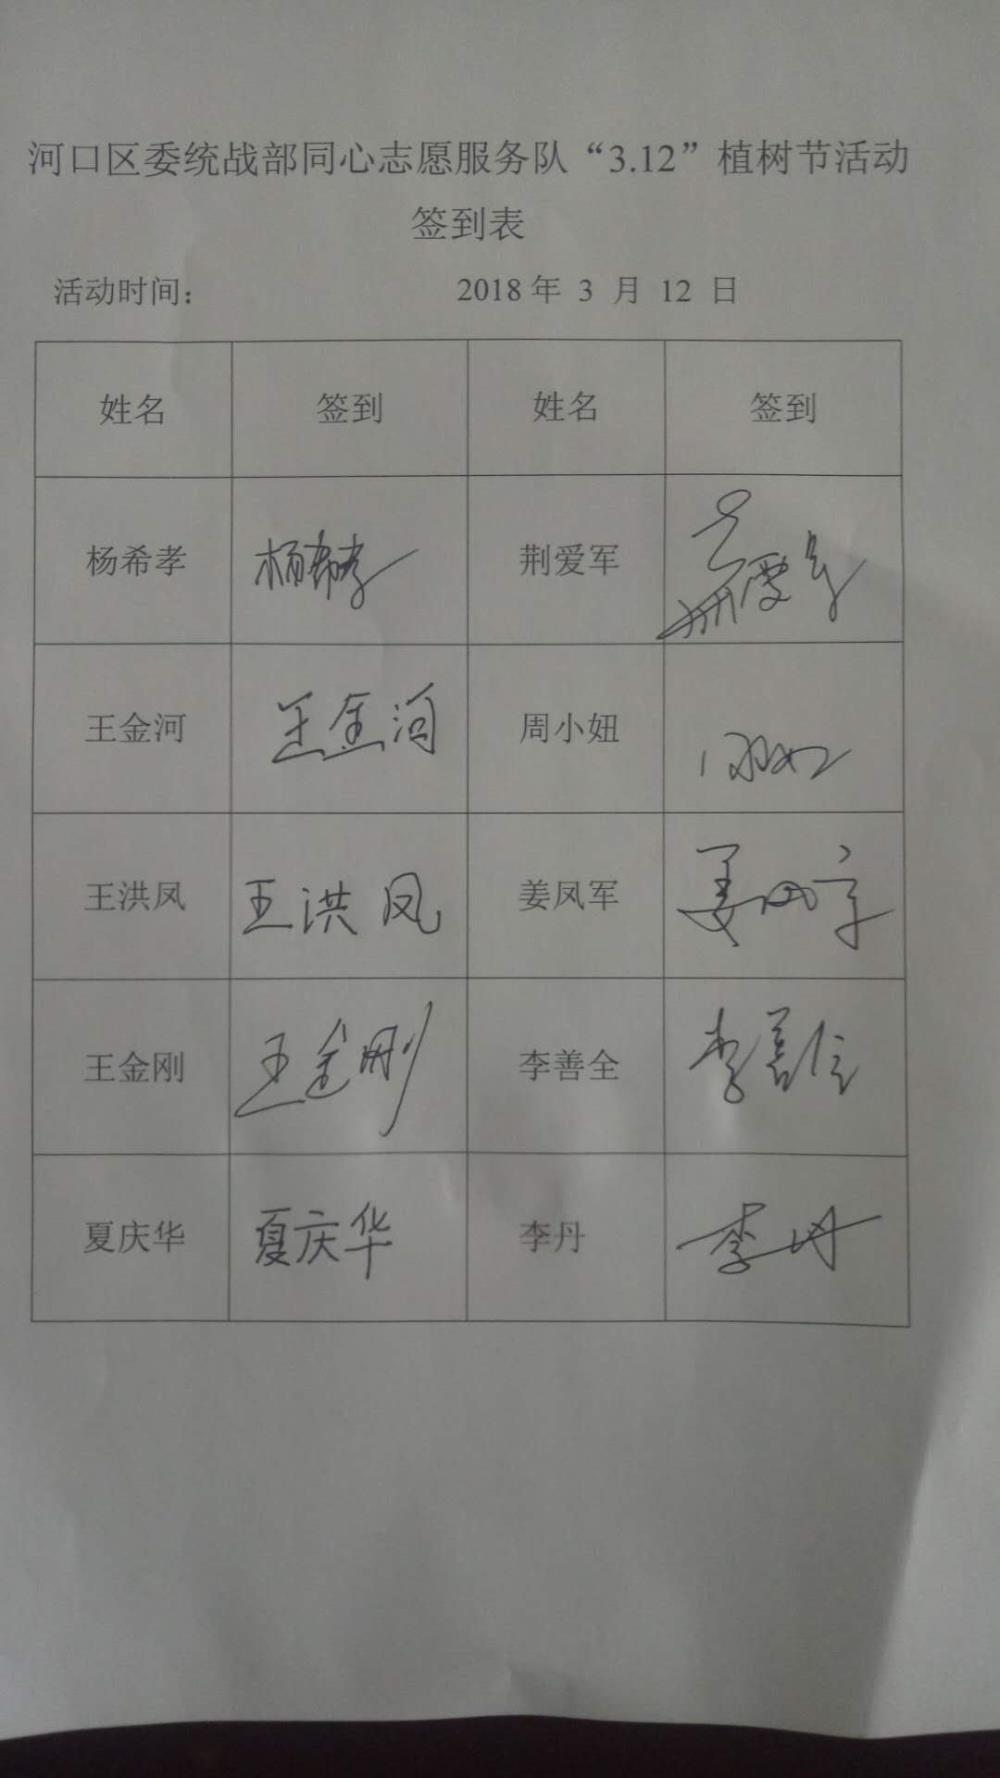 河口区委统战部同心志愿服务队“3.12”植树节活动
签到表
活动时间： 2018 年 3 月 12 日
姓名 签到 姓名 签到
杨希孝 杨希孝 荆爱军 荆爱军
王金河 王金河 周小妞
王洪凤 王洪凤 姜凤军 姜凤军
王金刚 王金刚 李善全 李善全
夏庆华 夏庆华 李丹 李丹